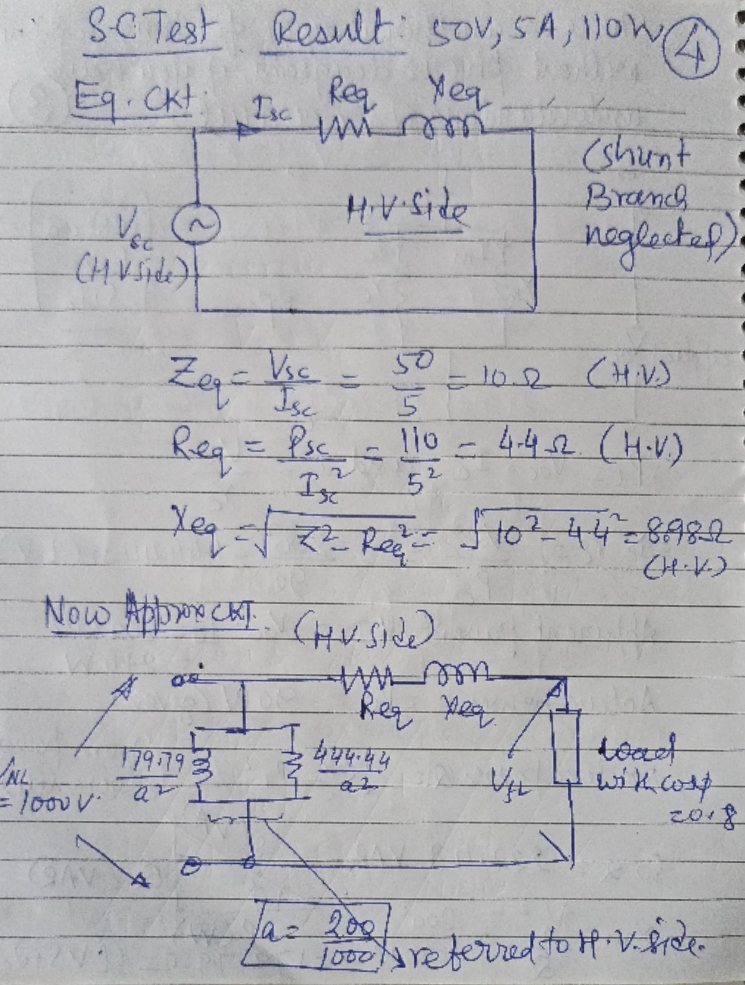 S.C Test Result: 50V, 5A, 110W
4
Eq. Ckt.
Isc Req Xeq
(shunt
Branch
neglected)
H.V. Side
Vsc
(H.V side)
Zeq = Vsc/Isc = 50/5 = 10 Ω (H.V.)
Req = Psc/Isc² = 110/5² = 4.4 Ω (H.V.)
Xeq = √Z² - Req² = √10² - 4.4² = 8.98Ω
(H.V.)
Now Approx CKT. (H.V. Side)
Req Xeq
179.79/a² 444.44/a²
VNL
= 1000V.
VfL
Load
with cosφ
= 0.8
a = 200/1000
referred to H.V. Side.